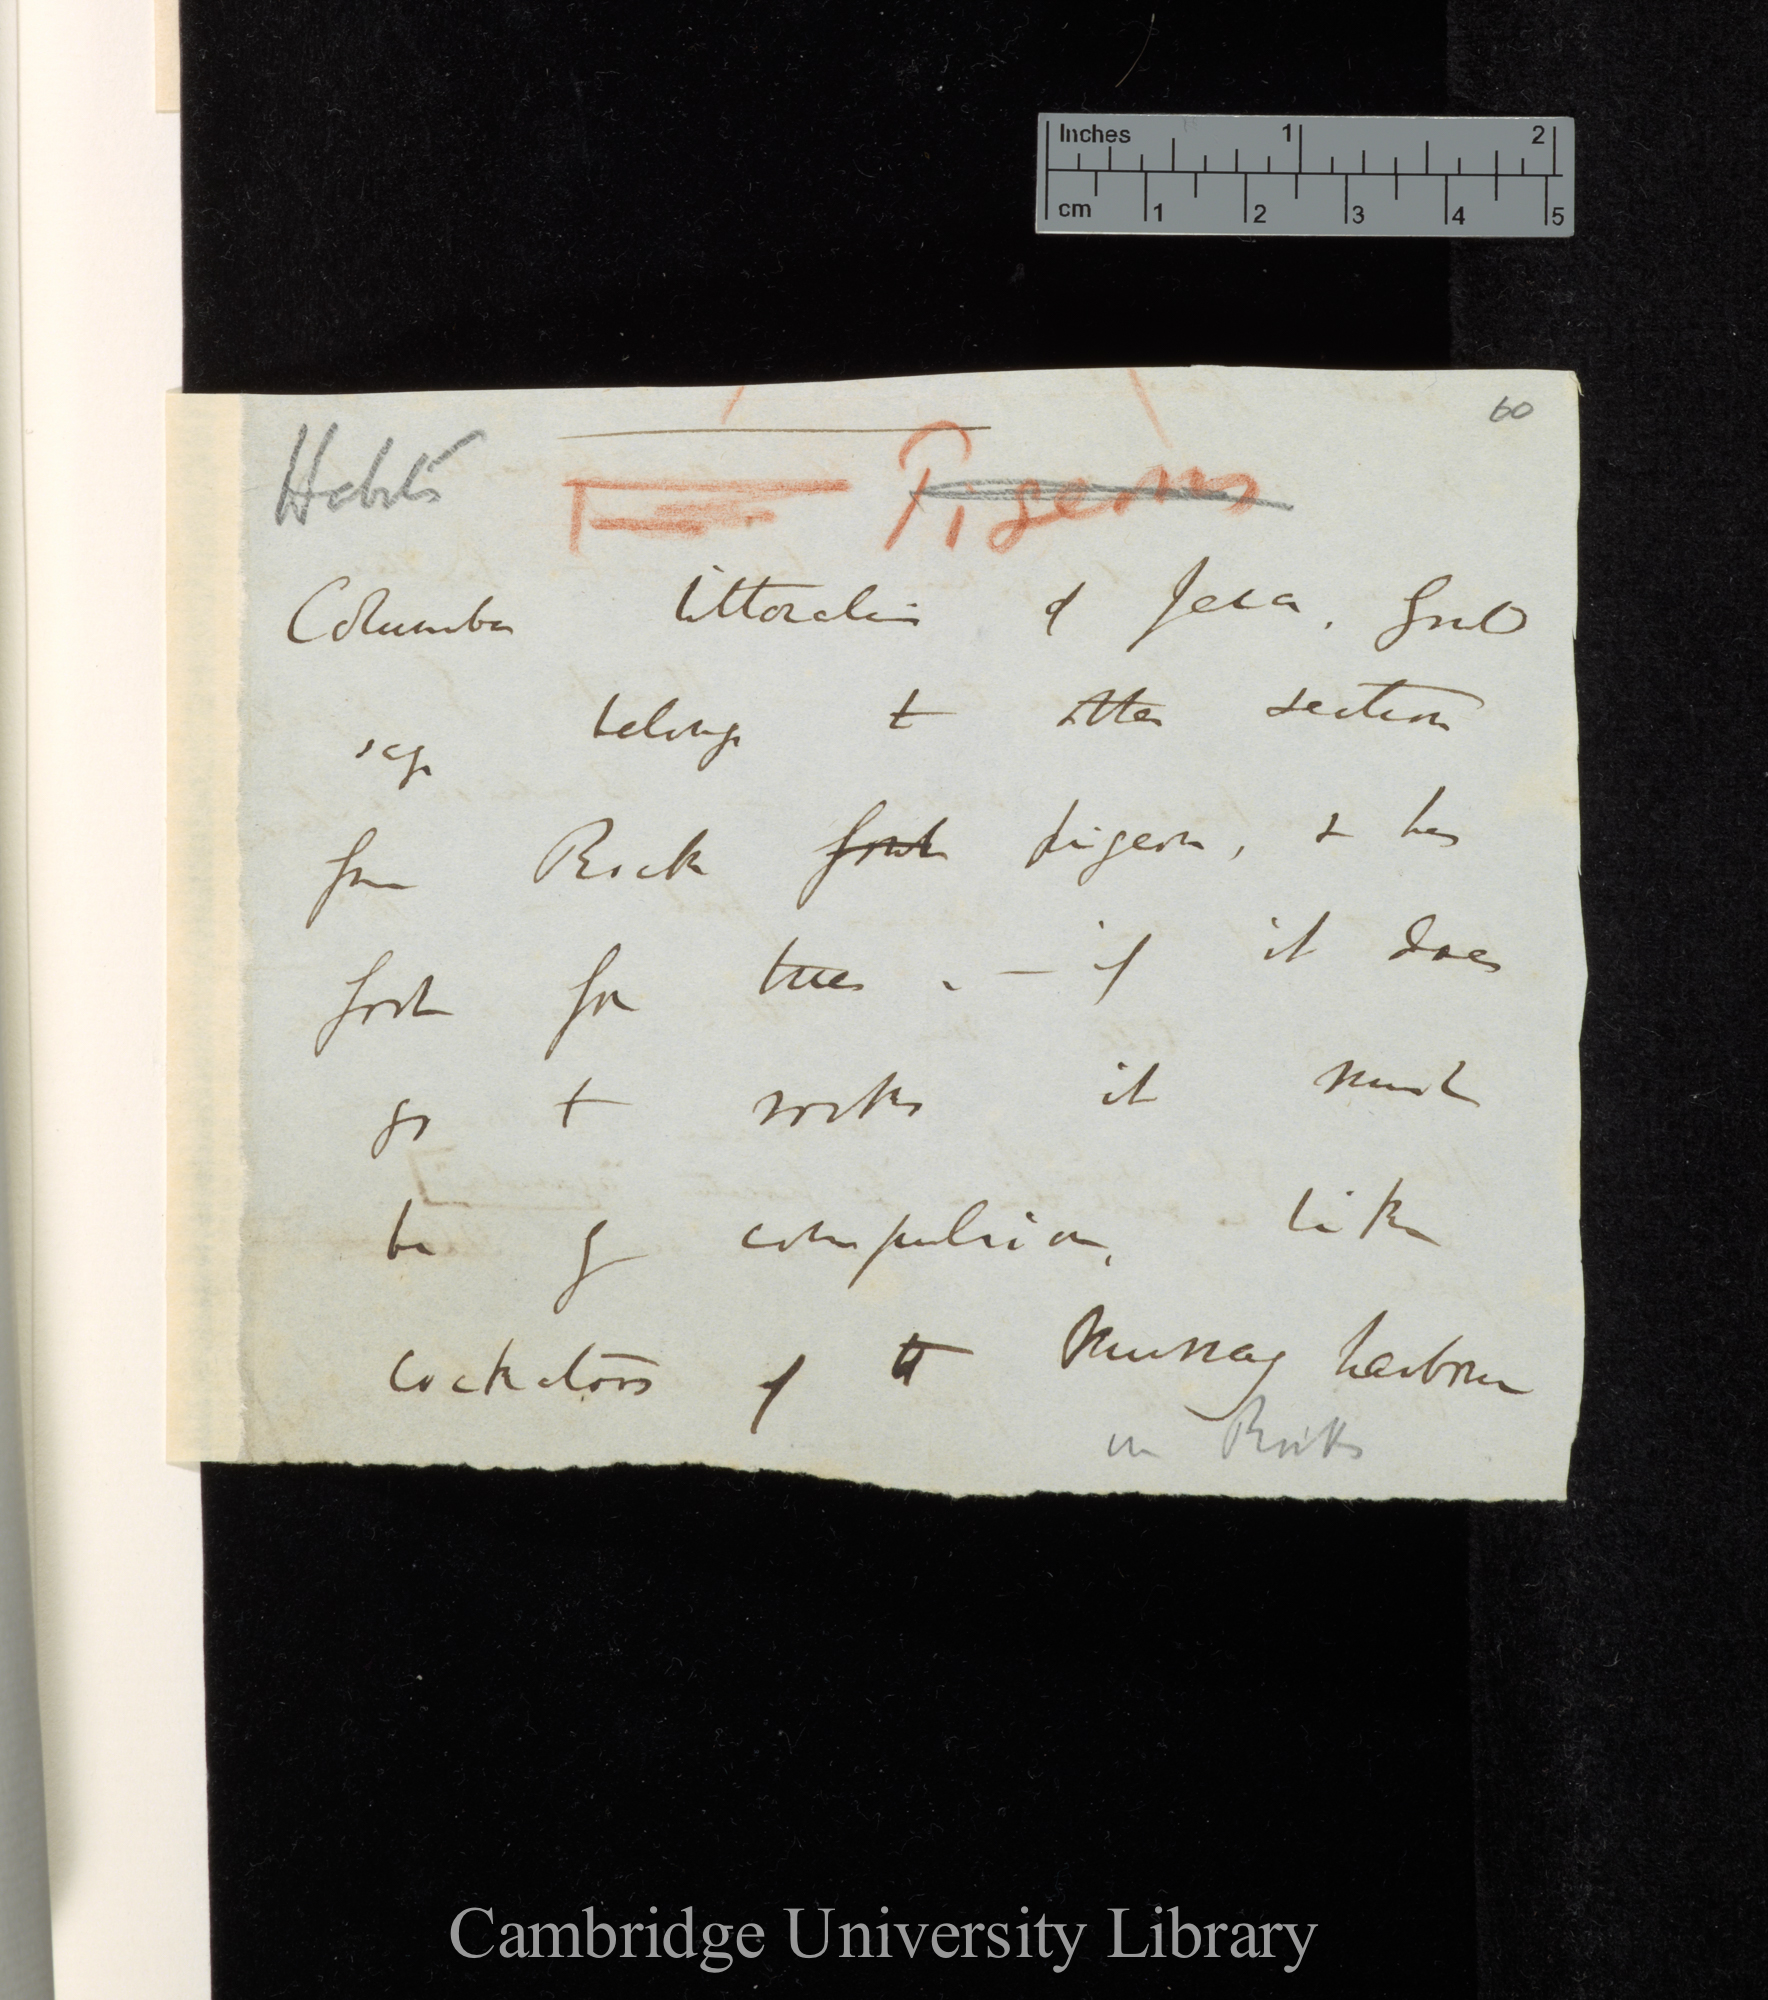 Inches 1 2
cm 1 2 3 4 5
60
Habits Pigeons
Columba littoralis of Java, Gould
says belongs to other section
from Rock foot pigeon, & has
foot for trees. — if it does
go to rocks it must
be by compulsion, like
cockatoos of the Murray harbour
in Rocks
Cambridge University Library